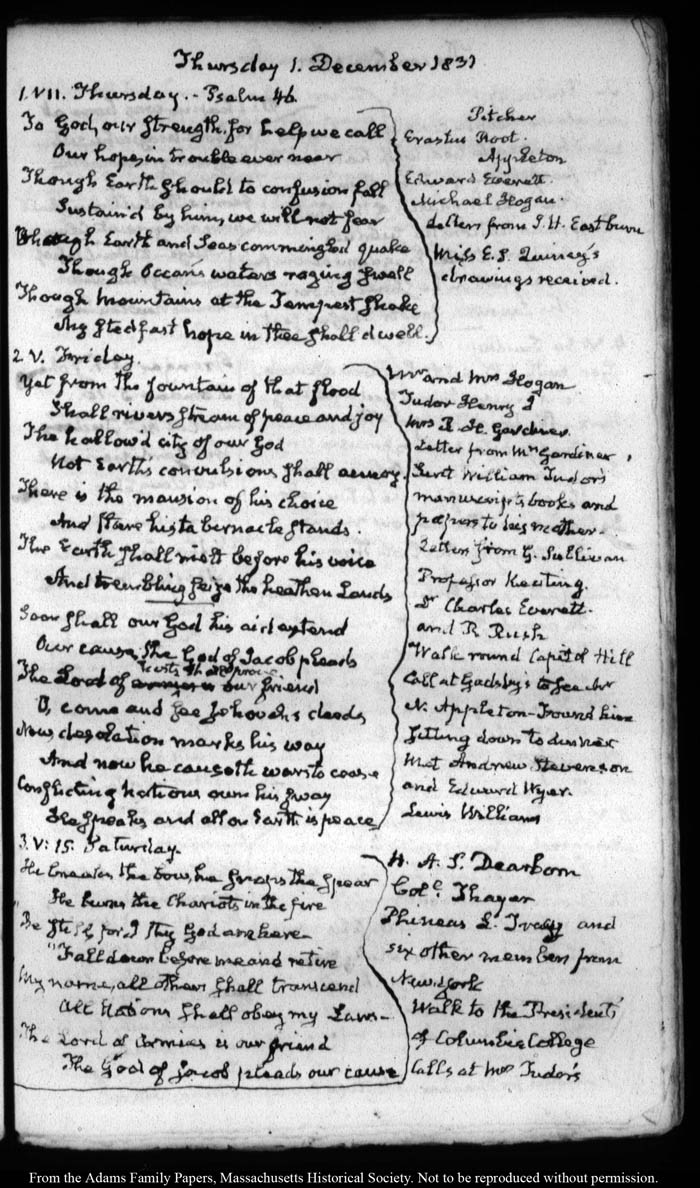 Thursday 1. December 1831
1. VII. Thursday. - Psalm 46
To God, our strength, for help we call
Our hope, in trouble ever near
Though Earth should to confusion fall
Sustain'd by him, we will not fear
Though Earth and Seas commingled quake
Though Ocean's waters raging swell
Though mountains at the Tempest shake
My stedfast hope in thee shall dwell.
Pitcher
Erastus Root.
Appleton
Edward Everett.
Michael Hogan.
letters from J. H. Eastburn
Miss E. S. Quincy's
drawings received.
2. V. Friday.
Yet from the fountain of that flood
Shall rivers stream of peace and joy
The hallow'd city of our God
Not Earth's convulsions shall annoy.
There is the mansion of his choice
And there his tabernacle stands.
The Earth shall melt before his voice
And trembling seize the heathen Lands
Soon shall our God his aid extend
Our cause, the God of Jacob pleads
The Lord of our friend
O, come and see Jehovah's deeds
Now desolation marks his way
And now he causeth wars to cease
Conflicting Nations own his sway
He speaks, and all on Earth is peace
Mr. and Mrs. Hogan
Tudor Henry J
Mrs R. H. Gardiner.
Letter from Mrs Gardiner,
Sent William Tudor's
manuscripts books and
papers to his mother.
Letter from G. Sullivan
Professor Keating.
Dr Charles Everett.
and R. Rush
Walk round Capitol Hill
Call at Gadsby's to see Mr
N. Appleton - Found him
sitting down to dinner
Met Andrew Stevenson
and Edward Wyer.
Lewis Williams
3. V: 15. Saturday.
He breaks the bow, he snaps the spear
He burns the Chariots in the fire
"Be still, for I thy God am here -
"Fall down before me and retire
My name, all others shall transcend
All Nations shall obey my Laws -
The Lord of Armies is our friend
The God of Jacob pleads our cause
H. A. S. Dearborn
Col. Thayer
Phineas L. Tracy and
six other members from
New-York
Walk to the President's
of Columbia College
Calls at Mrs Tudor's
From the Adams Family Papers, Massachusetts Historical Society. Not to be reproduced without permission.